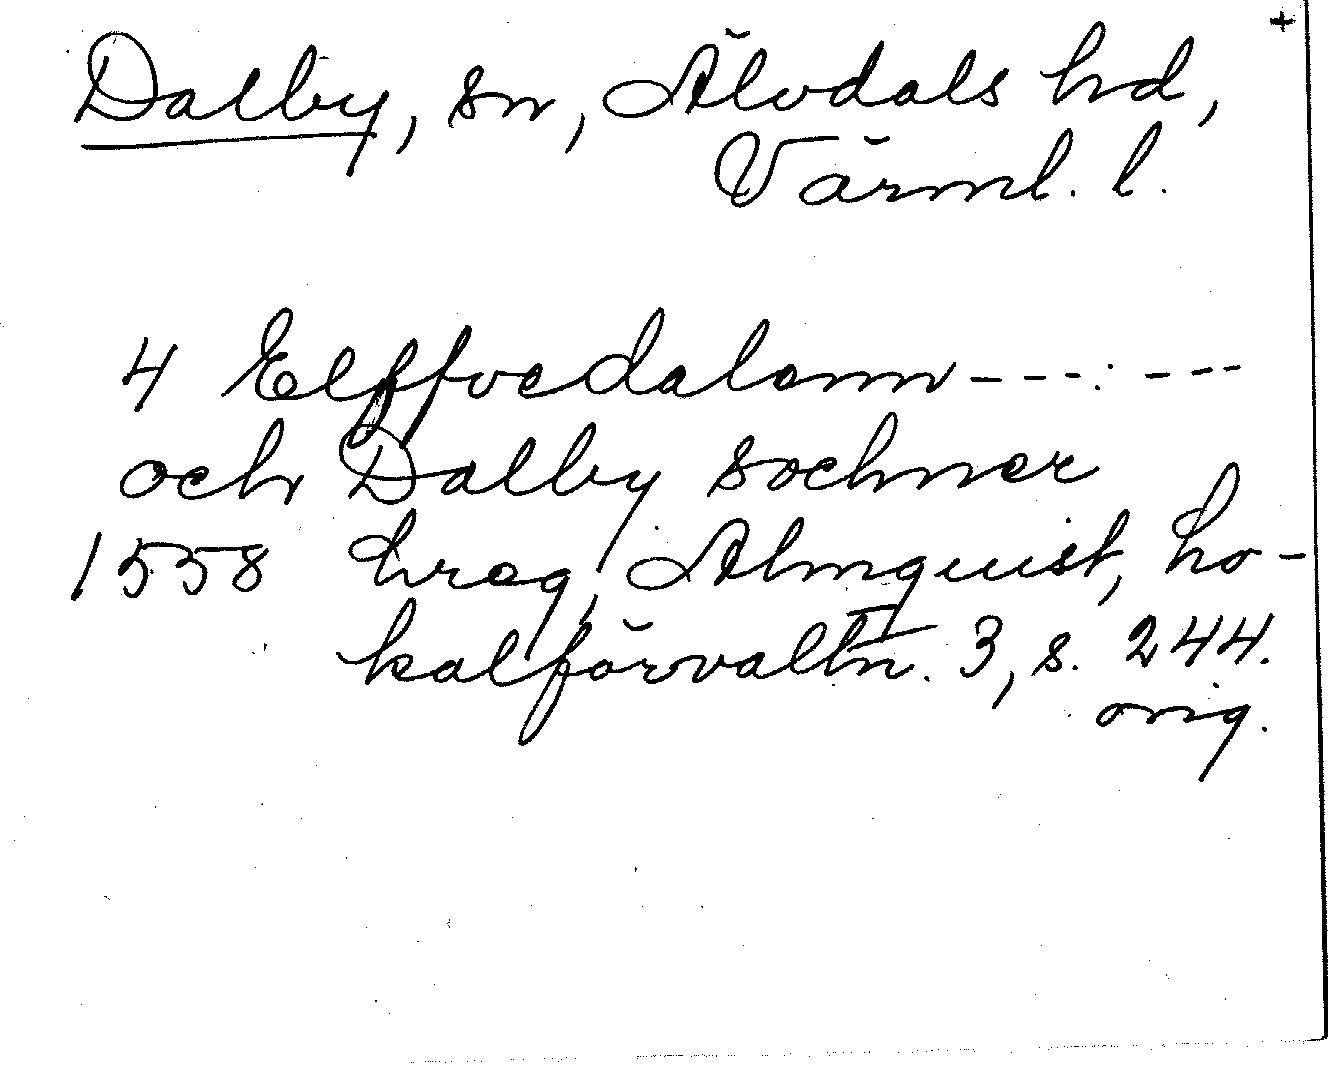 +
Dalby, sn, Älvdals hd,
Värml. l.
4 Elffvedalenn - - - : - - -
och Dalby sochner
1558 hreg, Almquist, Lo-
kalförvaltn. 3, s. 244.
orig.